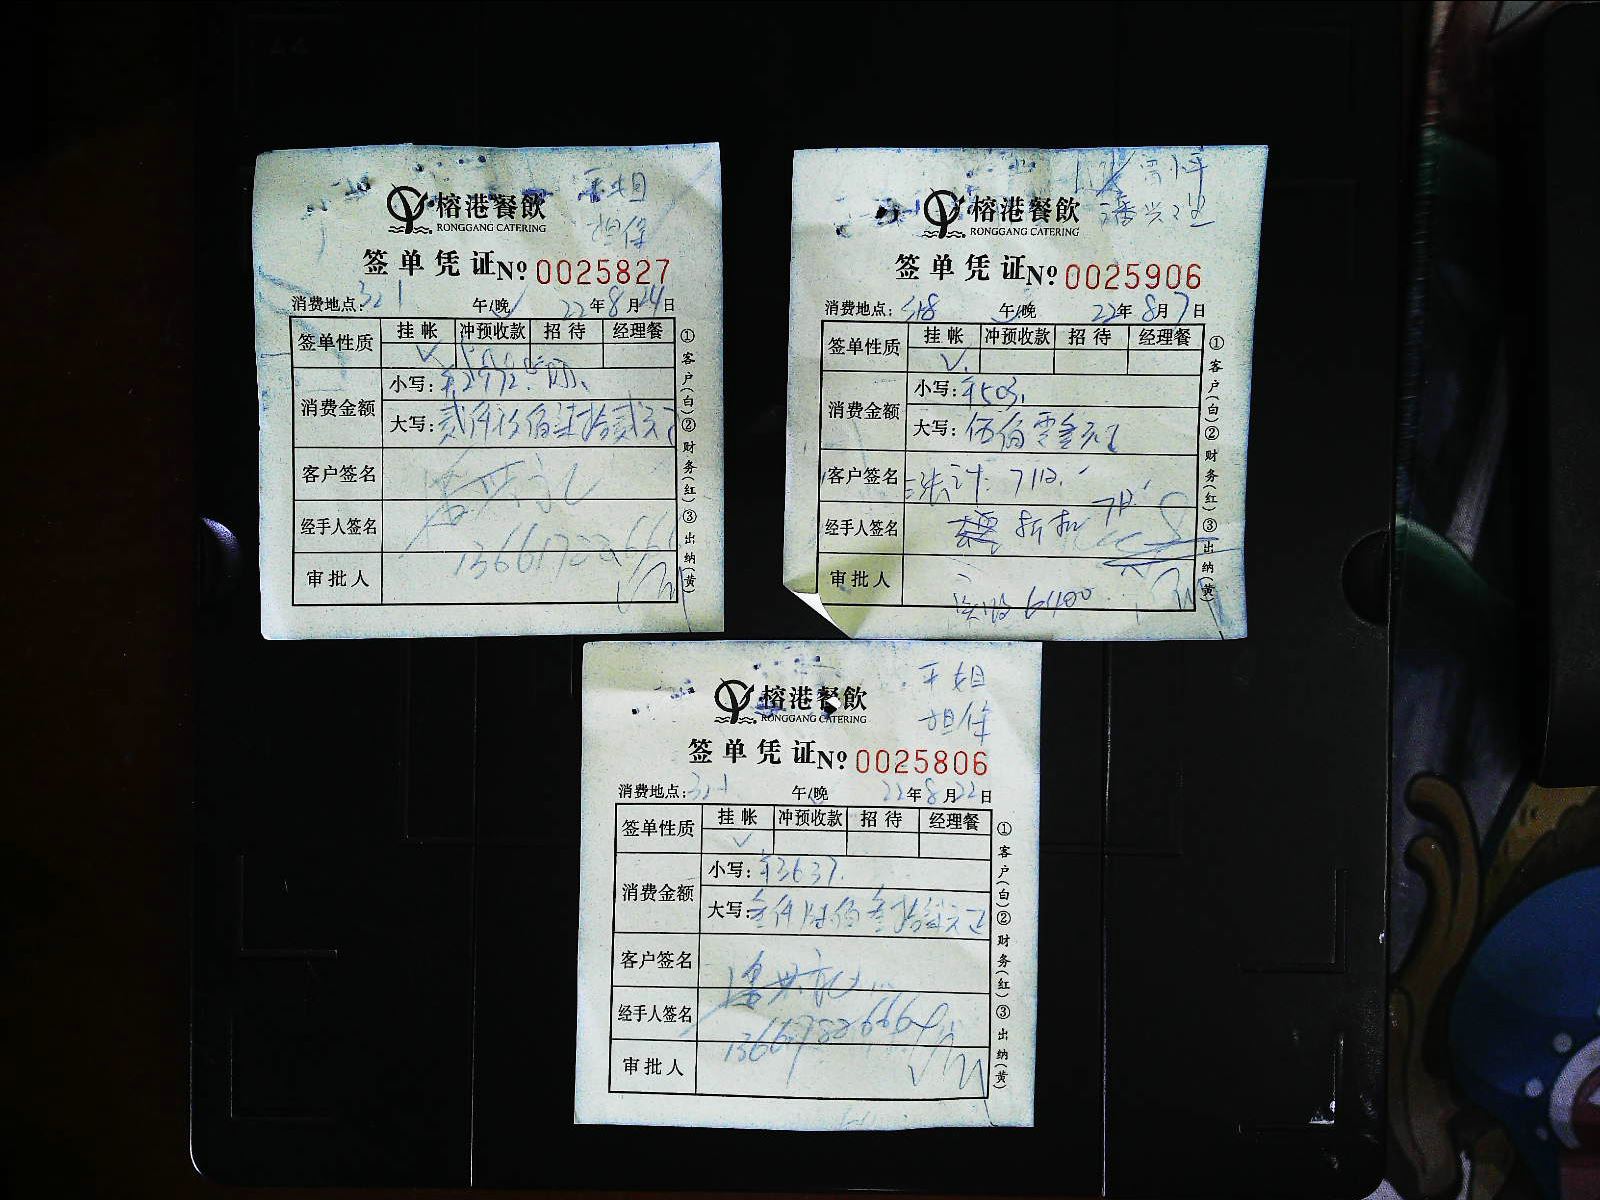 王姐
担保
榕港餐飲
RONGGANG CATERING
签单凭证 No 0025827
消费地点: 321 午/晚 22年8月24日
签单性质 挂帐 冲预收款 招待 经理餐
✓
消费金额 小写: ¥2972.
大写: 贰仟玖佰柒拾贰元正
客户签名
经手人签名
审批人
①客户(白)②财务(红)③出纳(黄)
榕港餐飲
RONGGANG CATERING
签单凭证 No 0025906
消费地点: 318 午/晚 22年8月7日
签单性质 挂帐 冲预收款 招待 经理餐
✓
消费金额 小写: ¥503.
大写: 伍佰零叁元正
客户签名
经手人签名 折扣
审批人
①客户(白)②财务(红)③出纳(黄)
王姐
担保
榕港餐飲
RONGGANG CATERING
签单凭证 No 0025806
消费地点: 321 午/晚 22年8月22日
签单性质 挂帐 冲预收款 招待 经理餐
✓
消费金额 小写: ¥3637.
大写: 叁仟陆佰叁拾柒元正
客户签名
经手人签名
审批人
①客户(白)②财务(红)③出纳(黄)